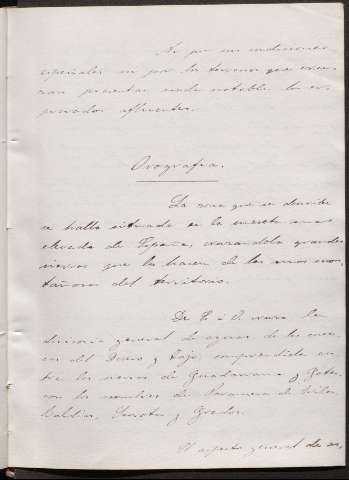 Ni por sus condiciones
especiales ni por los terrenos que cruzan
presentan nada notable los ex-
presados afluentes.
Orografía.
La zona que se describe
se halla situada en la meseta mas
elevada de España, cruzandola grandes
sierras que la hacen de las mas mon-
tañosas del territorio.
De E. á O. cruza la
divisoria general de aguas de las cuen-
cas del Duero y Tajo, comprendida en-
tre las sierras de Guadarrama y Gata,
con los nombres de Paramera de Avila,
y Gredos.
El aspecto general de su,